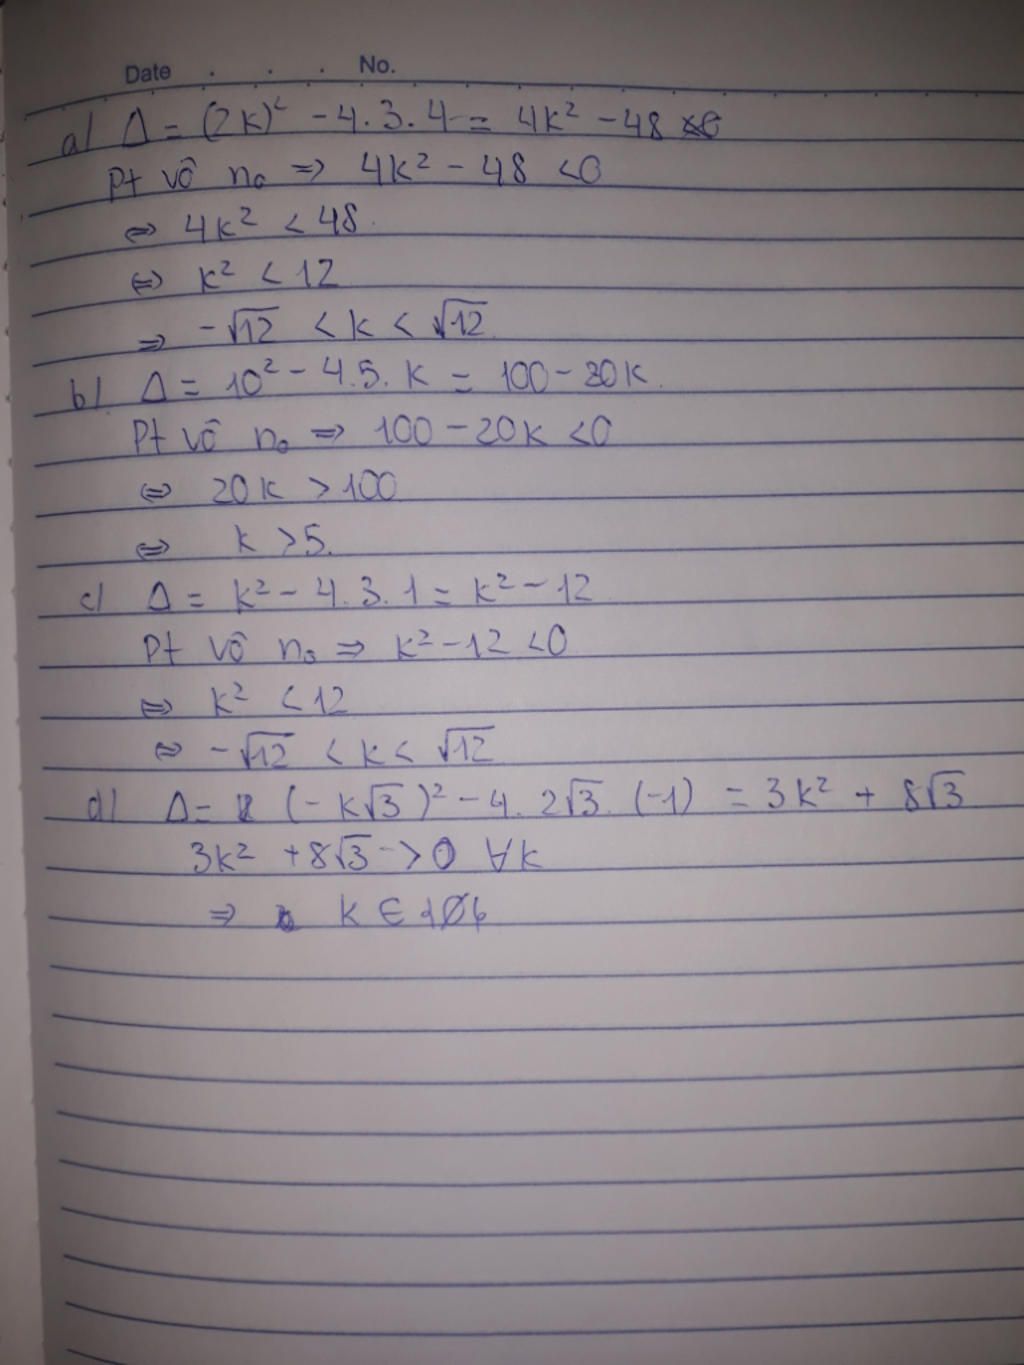 Date . . . No.
a) Δ = (2k)² - 4.3.4 = 4k² - 48
Pt vô n₀ ⇒ 4k² - 48 < 0
⇔ 4k² < 48.
⇔ k² < 12
⇒ -√12 < k < √12
b) Δ = 10² - 4.5.k = 100 - 20k.
Pt vô n₀ ⇒ 100 - 20k < 0
⇔ 20k > 100
⇔ k > 5.
c) Δ = k² - 4.3.1 = k² - 12
Pt vô n₀ ⇒ k² - 12 < 0
⇔ k² < 12
⇔ -√12 < k < √12
d) Δ = (-k√3)² - 4.2√3.(-1) = 3k² + 8√3
3k² + 8√3 > 0 ∀k
⇒ k ∈ {Ø}